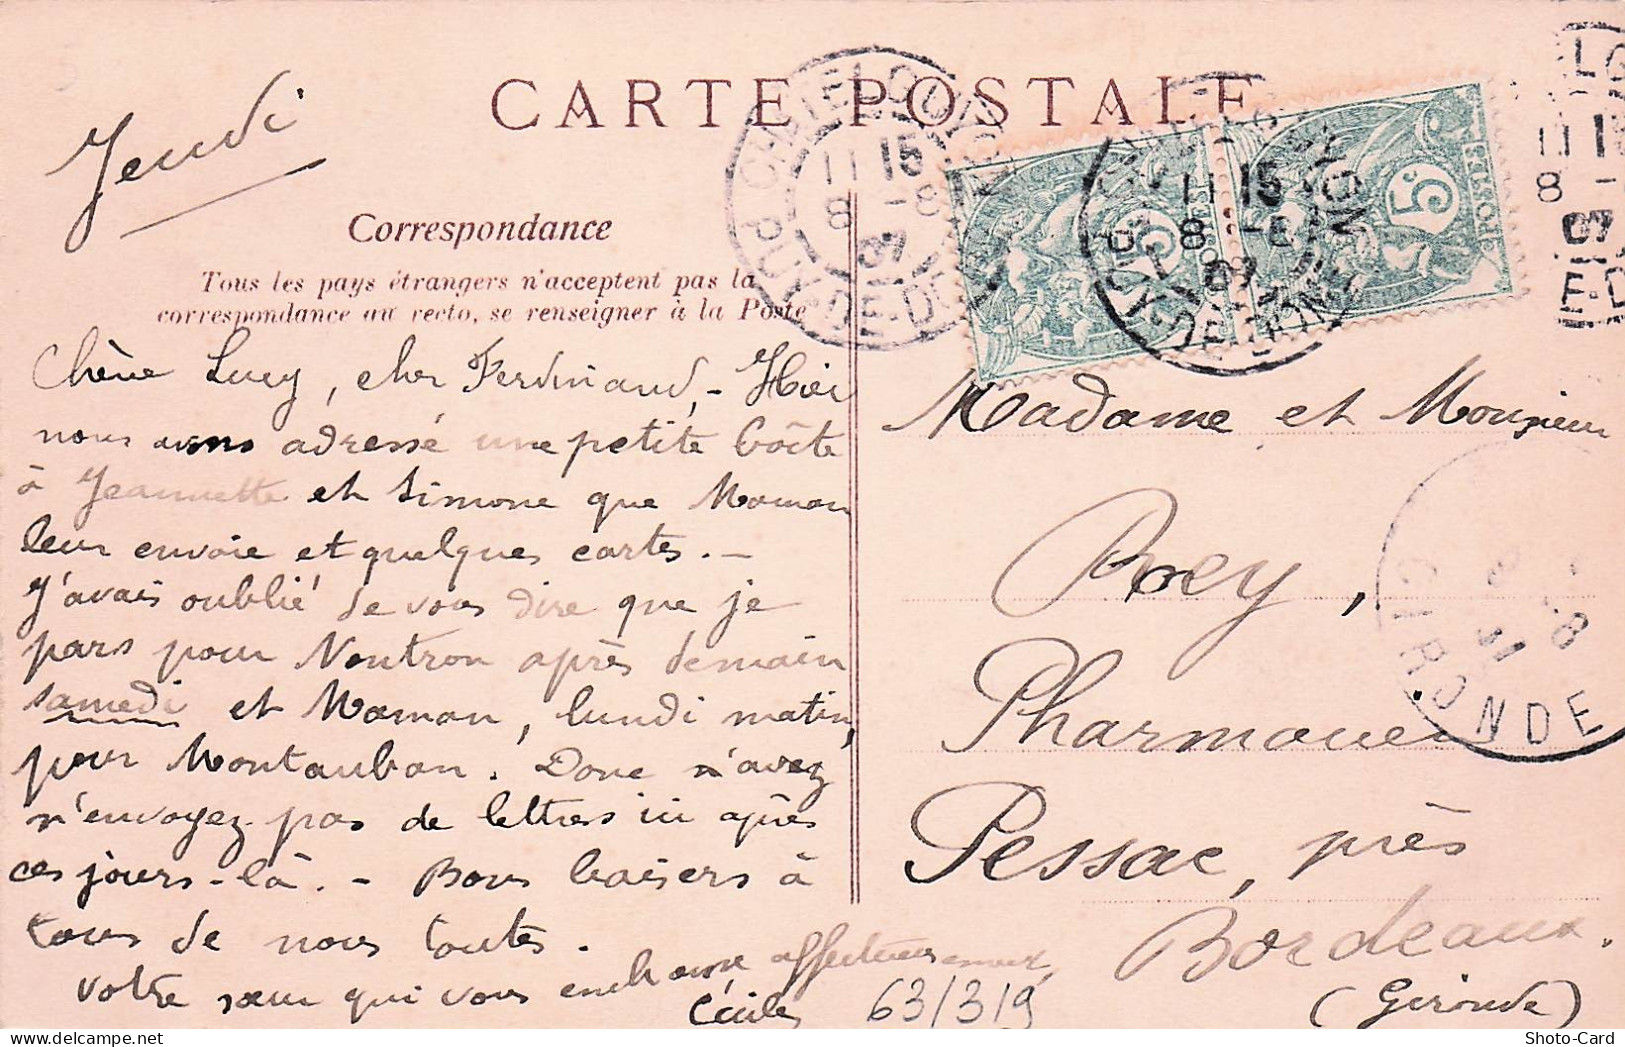 CARTE POSTALE
Jeudi
Correspondance
Tous les pays étrangers n'acceptent pas la
correspondance au recto, se renseigner à la Poste
Chère Lucy, cher Ferdinand, - Hier
nous avons adressé une petite boîte
à Jeannette et Simone que Maman
leur envoie et quelques cartes. -
J'avais oublié de vous dire que je
pars pour Nontron après demain
samedi et Maman, lundi matin,
pour Montauban. Donc n'avez
n'envoyez pas de lettres ici après
ces jours-là. - Bons baisers à
tous de nous toutes.
Votre sœur qui vous embrasse affectueusement,
Cécile
63/319
CHATEL GUYON
11 15
8 - 8
07
PUY-DE-DOME
CHATEL GUYON
11 15
8 - 8
07
PUY-DE-DOME
5c
5c
POSTES
ELG
11 15
8 -
07
E-D
Madame et Monsieur
Rey,
Pharmacie
Pessac, près
Bordeaux.
(Gironde)
GIRONDE
Shoto-Card